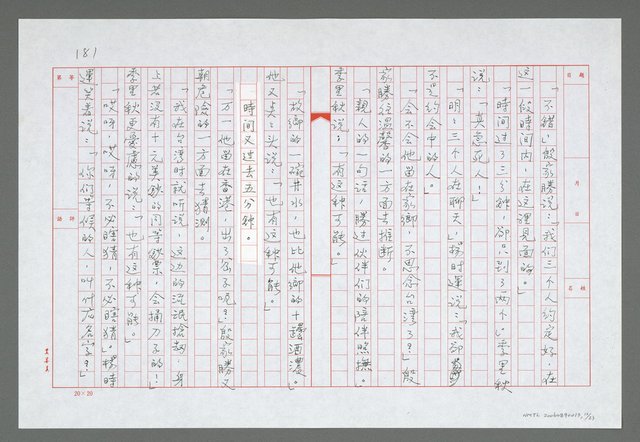 181
題目
月 日
姓名
「不錯，」殷家勝說：「我們三個人約定好，在
這一段時間內，在這裡見面的。」
「時間過了三分鐘，卻只到了兩個。」季里秋
說：「真急死人！」
「明明三個人在聊天，」楊時運說：「我卻
不是約會中的人。」
「會不會他留在家鄉，不思念台灣了？」殷
家勝往溫馨的一方面去推斷。
「親人的一句話，勝過伙伴們的陪伴照撫。」
季里秋說：「有這種可能。」
「故鄉的一碗井水，也比他鄉的十罈酒濃。」
他又點點頭說：「也有這種可能。」
時間又過去五分鐘。
「萬一他留在香港，出了岔子呢？」殷家勝又
朝危險的一方面去猜測。
「我在台灣時就听說，這边的混混搶劫，身
上若沒有十元美鈔的同等鈔票，會捅刀子的！」
季里秋更憂慮的說：「也有這種可能。」
「哎呀，哎呀，不必瞎猜，不必瞎猜。」楊時
運笑着說：「你們等候的人，叫什広名字？」
第 等
評語
20×20